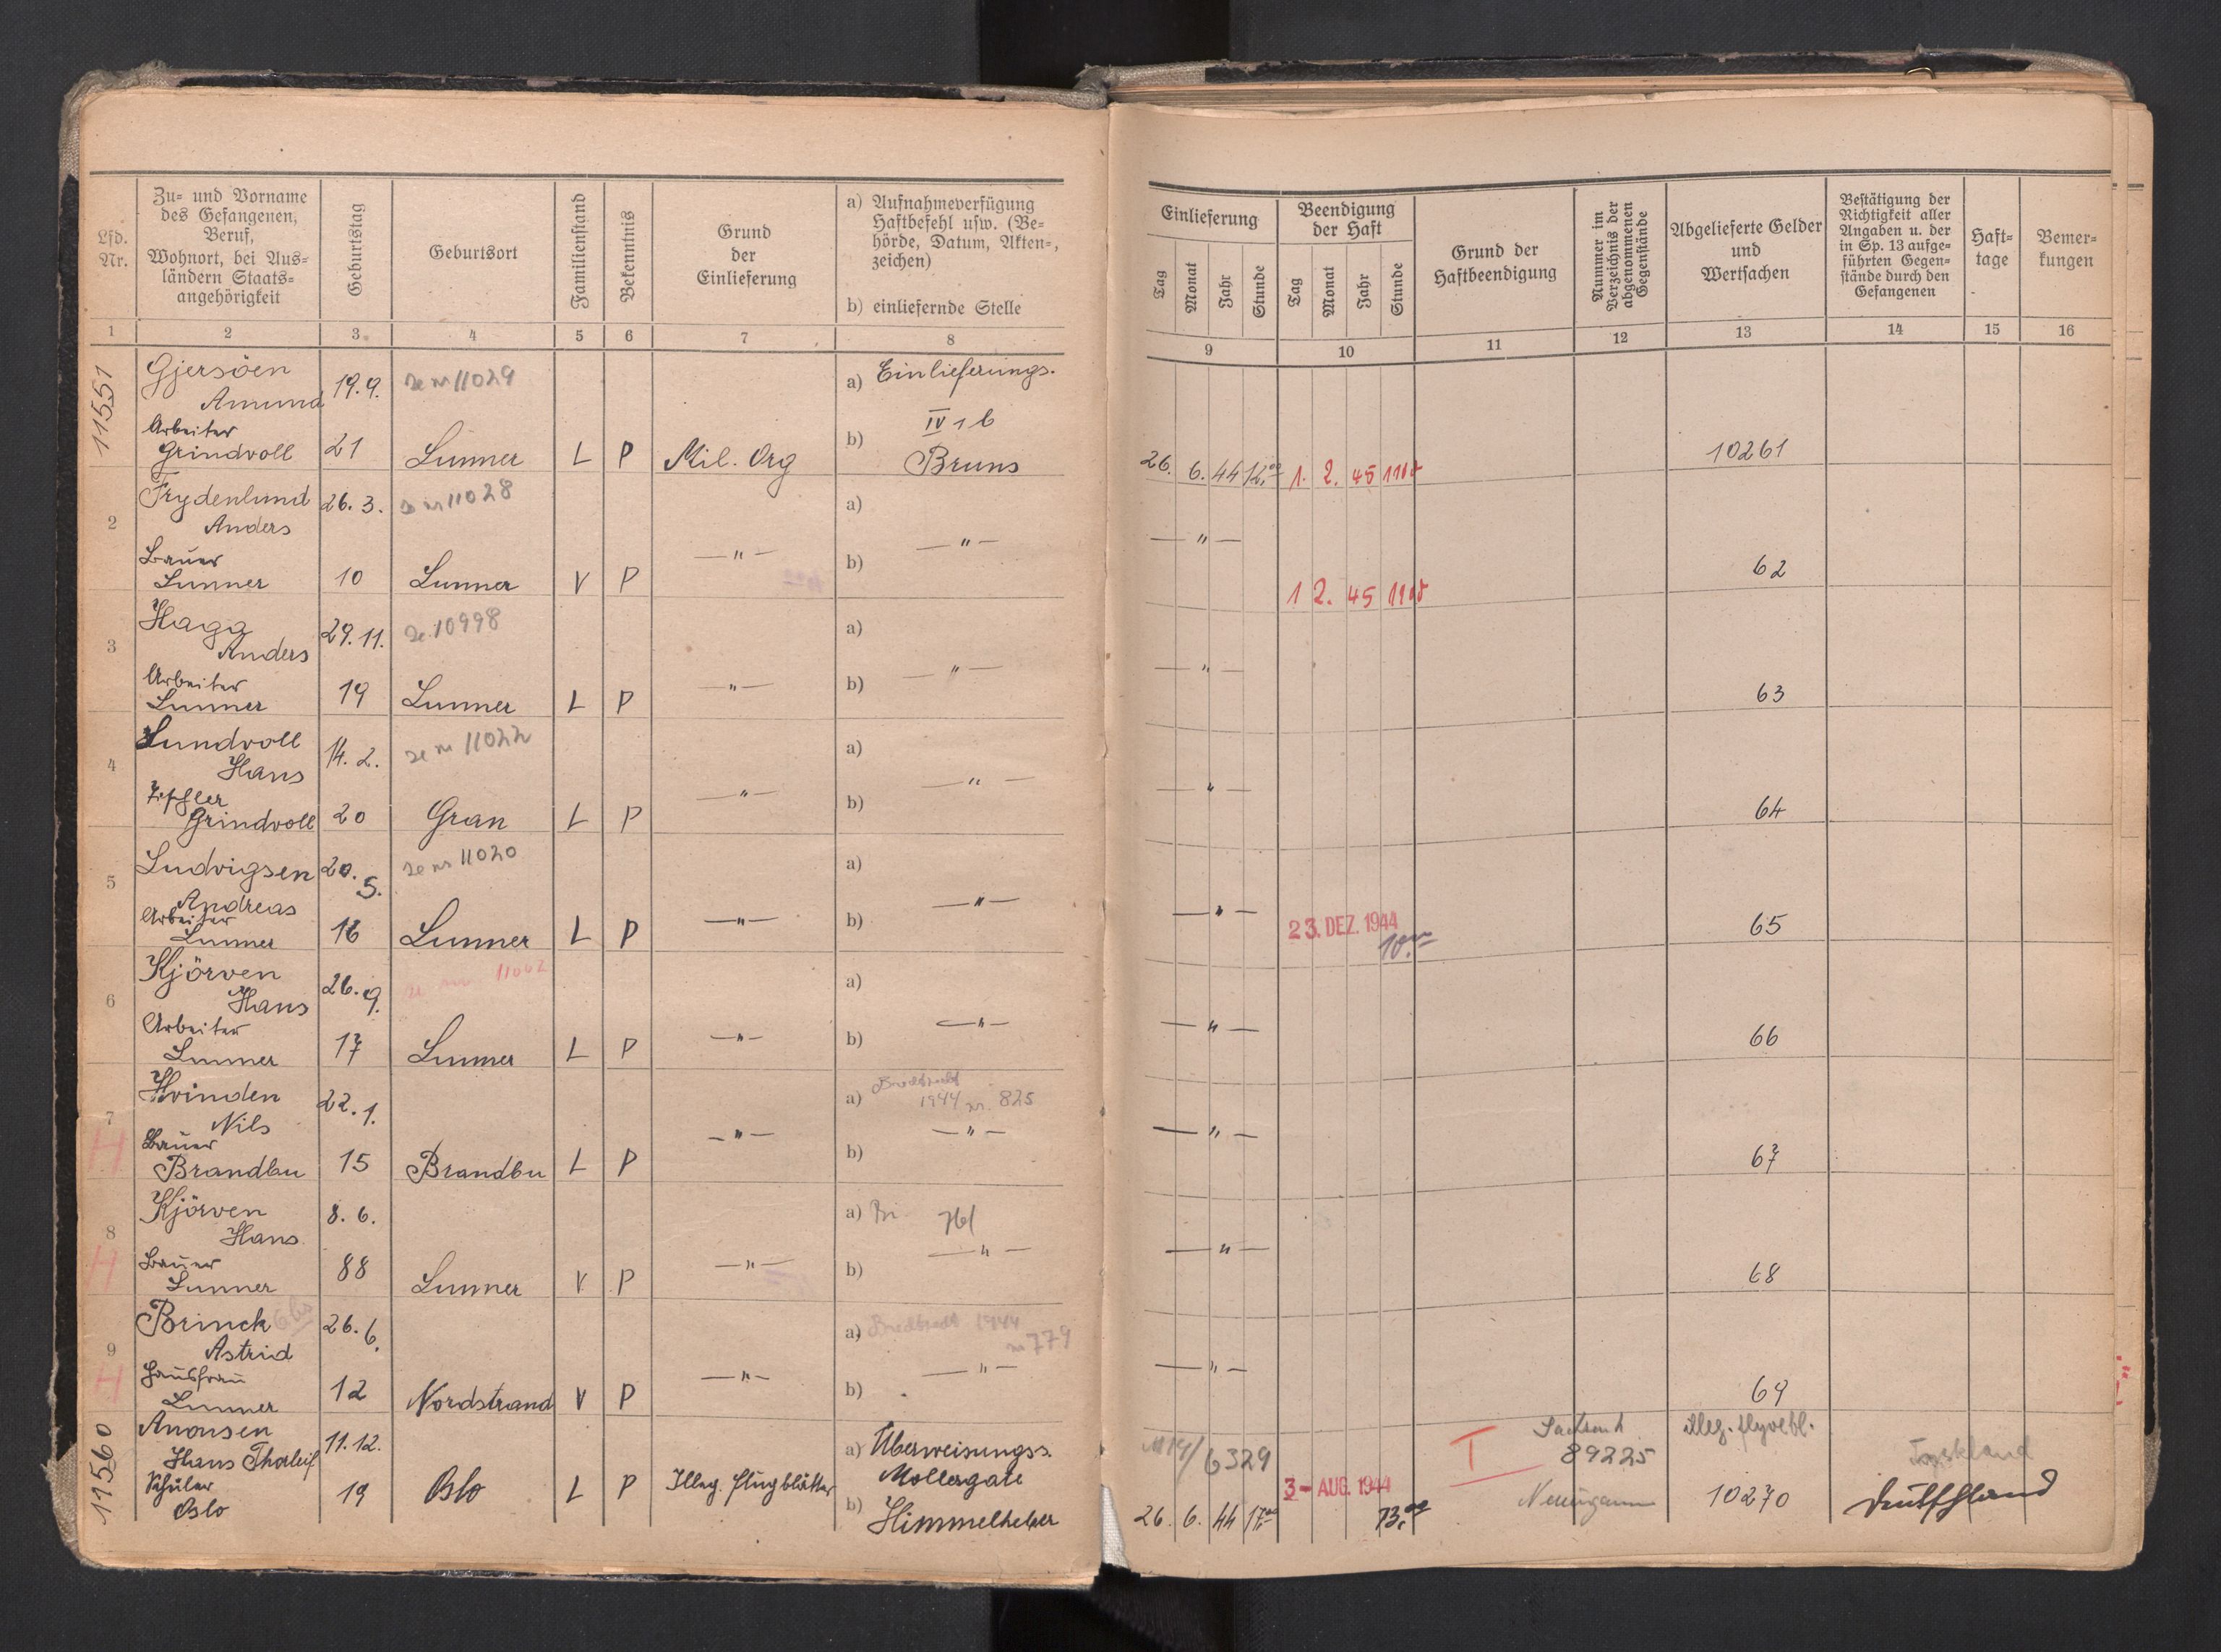 Lfd. Nr.
Zu- und Vorname
des Gefangenen,
Beruf,
Wohnort, bei Aus-
ländern Staats-
angehörigkeit
Geburtstag
Geburtsort
Familienstand
Bekenntnis
Grund
der
Einlieferung
a) Aufnahmeverfügung
Haftbefehl usw. (Be-
hörde, Datum, Akten-,
zeichen)
b) einliefernde Stelle
1 2 3 4 5 6 7 8
11551
Gjersöen 19.9. se nr 11029 a) Einlieferungs.
Amund
Arbeiter IV 1 b
Grindvoll 21 Lunner L P Mil. Org b) Bruns
2 Frydenlund 26. 3. se nr 11028 a)
Anders
Bauer —"— —"—
Lunner 10 Lunner V P b)
3 Haga 29. 11. se 10998 a)
Anders
Arbeiter —"— —"—
Lunner 19 Lunner L P b)
4 Lundvoll 14. 2. se nr 11022 a)
Hans
Tischler —"— —"—
Grindvoll 20 Gran L P b)
5 Ludvigsen 20. 5. se nr 11020 a)
Andreas
Arbeiter —"— —"—
Lunner 16 Lunner L P b)
6 Kjörven 26. 9. se nr. 11062 a)
Hans
Arbeiter —"— —"—
Lunner 17 Lunner L P b)
7 Hvinden 22. 1. a) 1944 nr. 825
Nils
H Bauer —"— —"—
Brandbu 15 Brandbu L P b)
8 Kjörven 8. 6. a)
Hans
H Bauer —"— —"—
Lunner 88 Lunner V P b)
9 Brinck 26. 6. a) 1944
Astrid nr 779
H Hausfrau —"— —"—
Lunner 12 Nordstrand V P b)
11560
Anonsen 11. 12. a) Überweisungss.
Hans Thorleif Mollergate
Schüler
Oslo 19 Oslo L P Illeg. Flugblätter b) Himmelheber
Einlieferung
Tag Monat Jahr Stunde
Beendigung
der Haft
Tag Monat Jahr Stunde
Grund der
Haftbeendigung
Nummer im
Verzeichnis der
abgenommenen
Gegenstände
Abgelieferte Gelder
und
Wertsachen
Bestätigung der
Richtigkeit aller
Angaben u. der
in Sp. 13 aufge-
führten Gegen-
stände durch den
Gefangenen
Haft-
tage
Bemer-
kungen
9 10 11 12 13 14 15 16
26. 6. 44 12.00 1. 2. 45 1100 10261
—"— 1 2. 45 1100 62
—"— 63
—"— 64
—"— 23. DEZ. 1944 10.00 65
—"— 66
—"— 67
—"— 68
—"— 69
6329 I 89225 illeg. flyvebl. Tyskland
26. 6. 44 17.00 3- AUG. 1944 13.00 10270 Deutschland